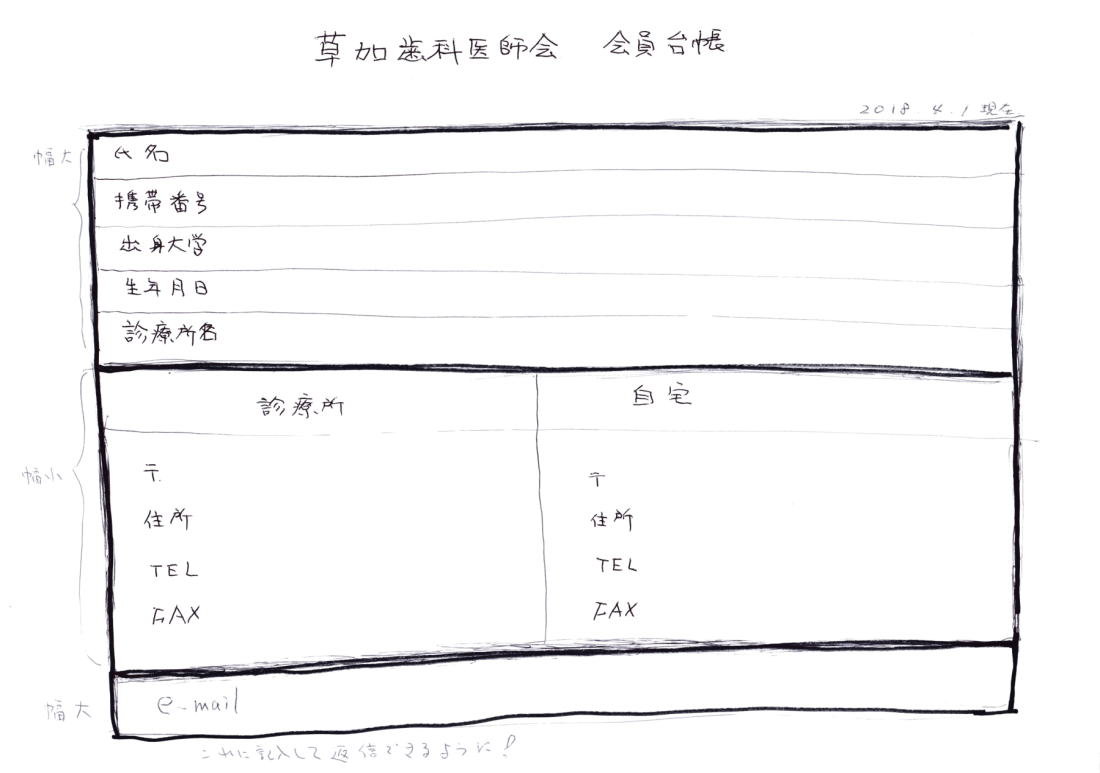 草加歯科医師会 会員台帳
2018 4.1 現在
幅大
氏名
携帯番号
出身大学
生年月日
診療所名
幅小
診療所 自宅
〒 〒
住所 住所
TEL TEL
FAX FAX
幅大
e-mail
これに記入して返信できるように!